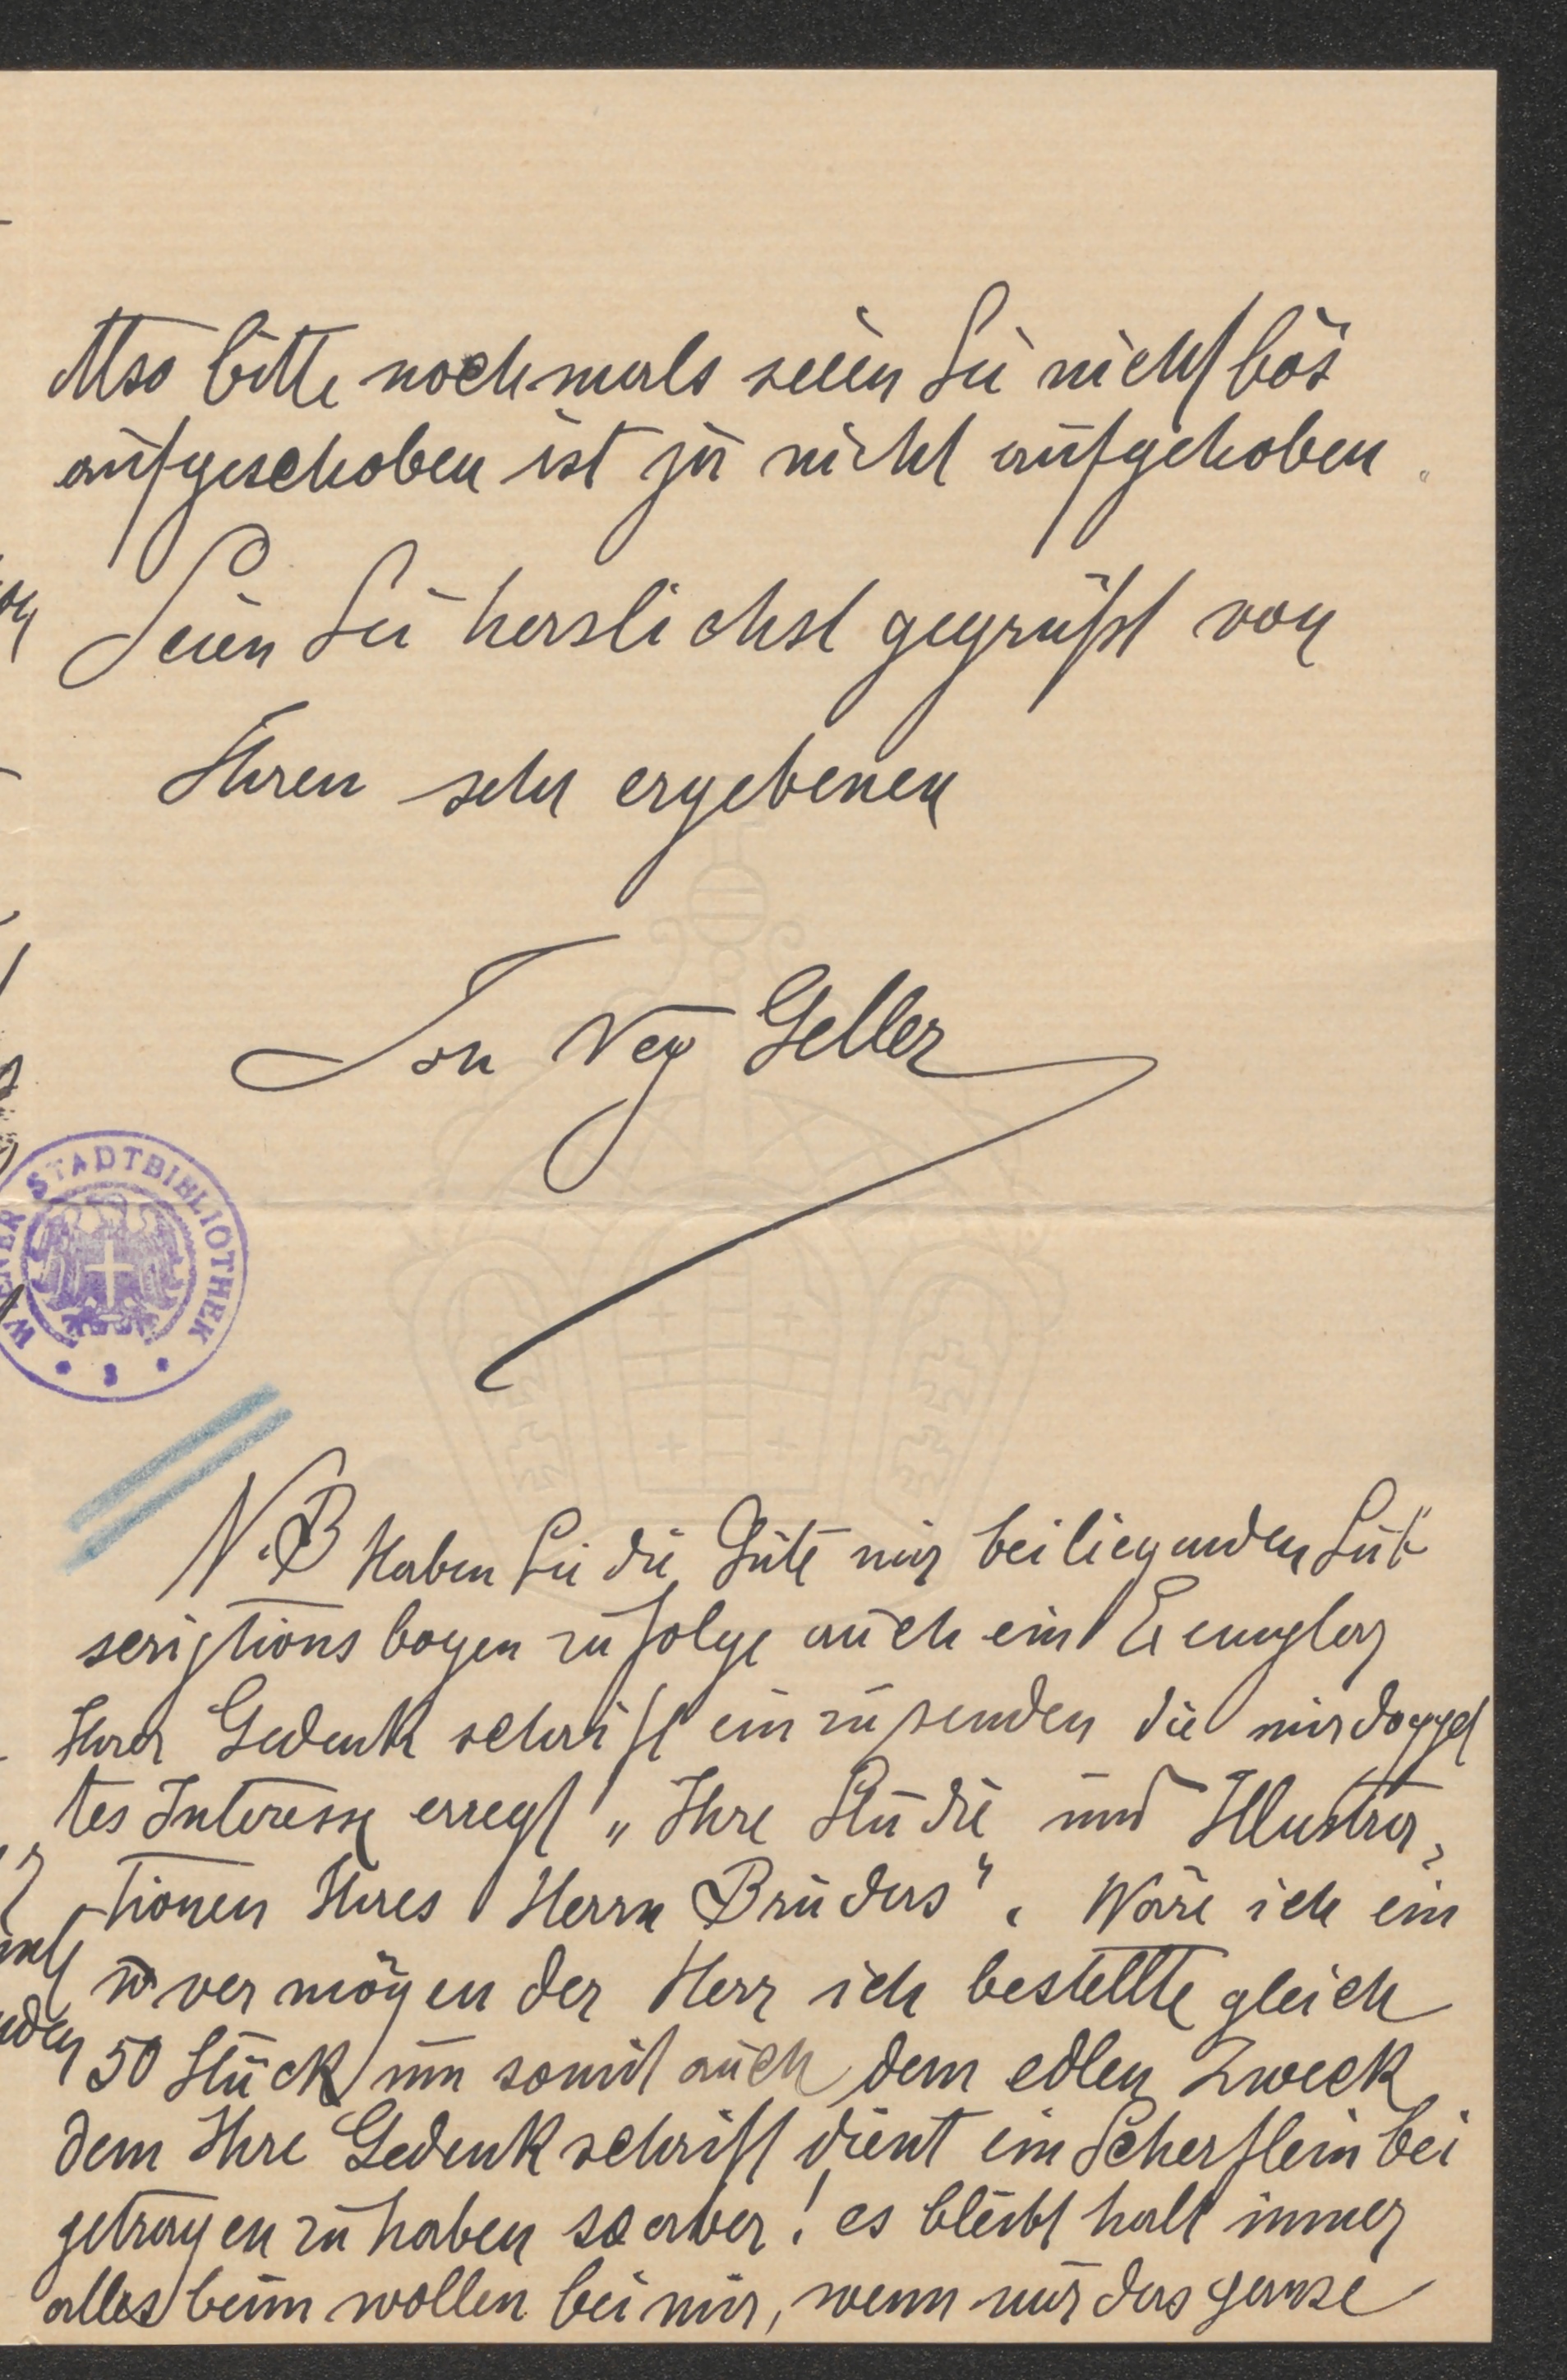 Also bitte nochmals seien Sie nicht bös
aufgeschoben ist ja nicht aufgehoben.
Seien Sie herslichst gegrüßt von
Ihren sehr ergebenen
Geller
WIENER STADTBIBLIOTHEK
N.B Haben Sie die Güte mir beiliegenden Sub
scriptions bogen zu folge auch ein Exemplar
Ihrer Gedenk schrift ein zu senden die mir doppel
tes Interesse erregt „Ihre Studie und Illustra„
tionen Ihres Herrn Bruders". Wäre ich ein
vermögen der Herr ich bestellte gleich
50 Stück um somit auch dem edlen Zweck
dem Ihre Gedenkschrift dient ein Scherflein bei
getragen zu haben so aber! es bleibt halt immer
alles beim wollen bei mir, wenn nur das ganse